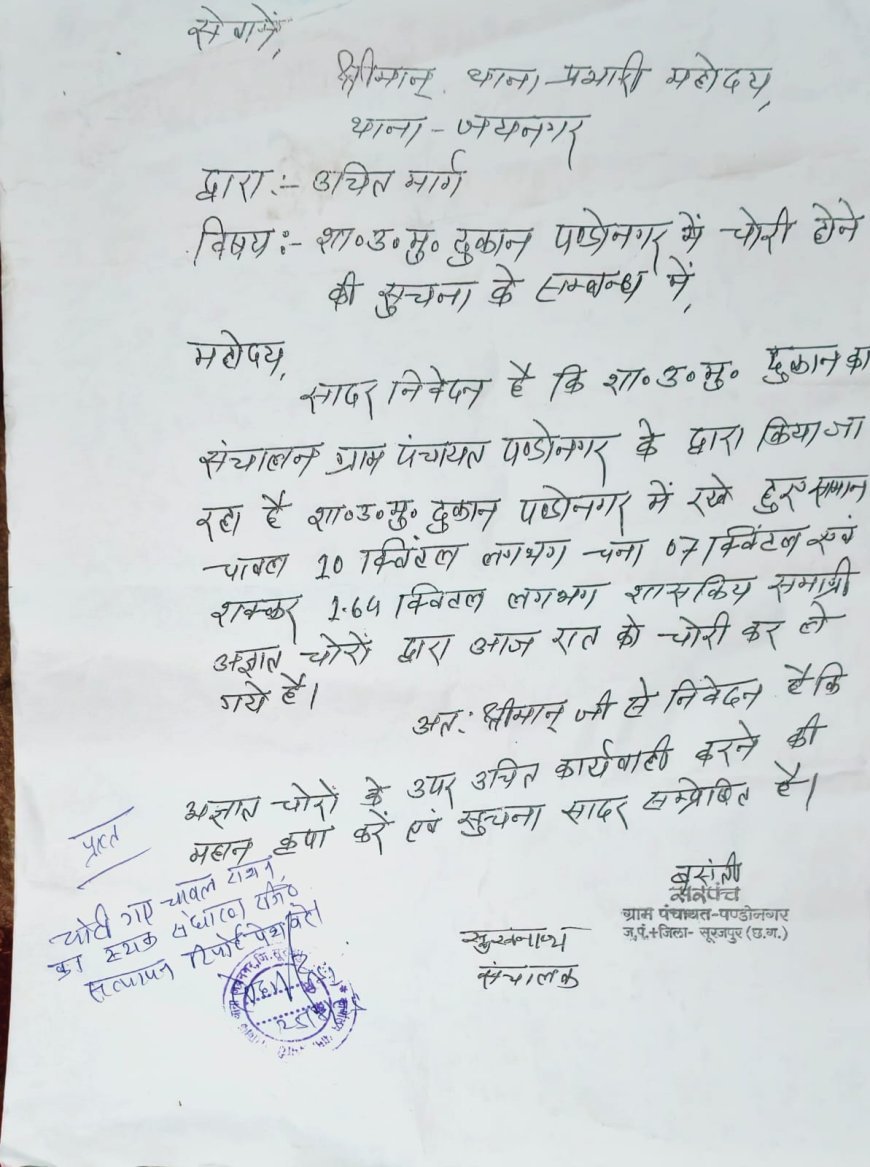 सेवामें,
श्रीमान् थाना प्रभारी महोदय,
थाना - जयनगर
द्वारा :- उचित मार्ग
विषय :- शा॰उ॰मु॰ दुकान पण्डोनगर में चोरी होने
की सुचना के सम्बन्ध में,
महोदय,
सादर निवेदन है कि शा॰उ॰मु॰ दुकान का
संचालन ग्राम पंचायत पण्डोनगर के द्वारा किया जा
रहा है शा॰उ॰मु॰ दुकान पण्डोनगर में रखे हुए समान
चावल 10 क्विंटल लगभग चना 07 क्विंटल एवं
शक्कर 1.64 क्विटल लगभग शासकिय समाग्री
अज्ञात चोरों द्वारा आज रात को चोरी कर ले
गये है।
अतः श्रीमान् जी से निवेदन है कि
अज्ञात चोरों के उपर उचित कार्यवाही करने की
महान कृपा करें एवं सुचना सादर सम्प्रेषित है।
चोरी गए चावल राशन,
का स्टाक संधारण
सत्यापन रिपोर्ट पेश करें।
बसंती
सरपंच
ग्राम पंचायत-पण्डोनगर
ज.पं.+जिला- सूरजपुर (छ.ग.)
संचालक